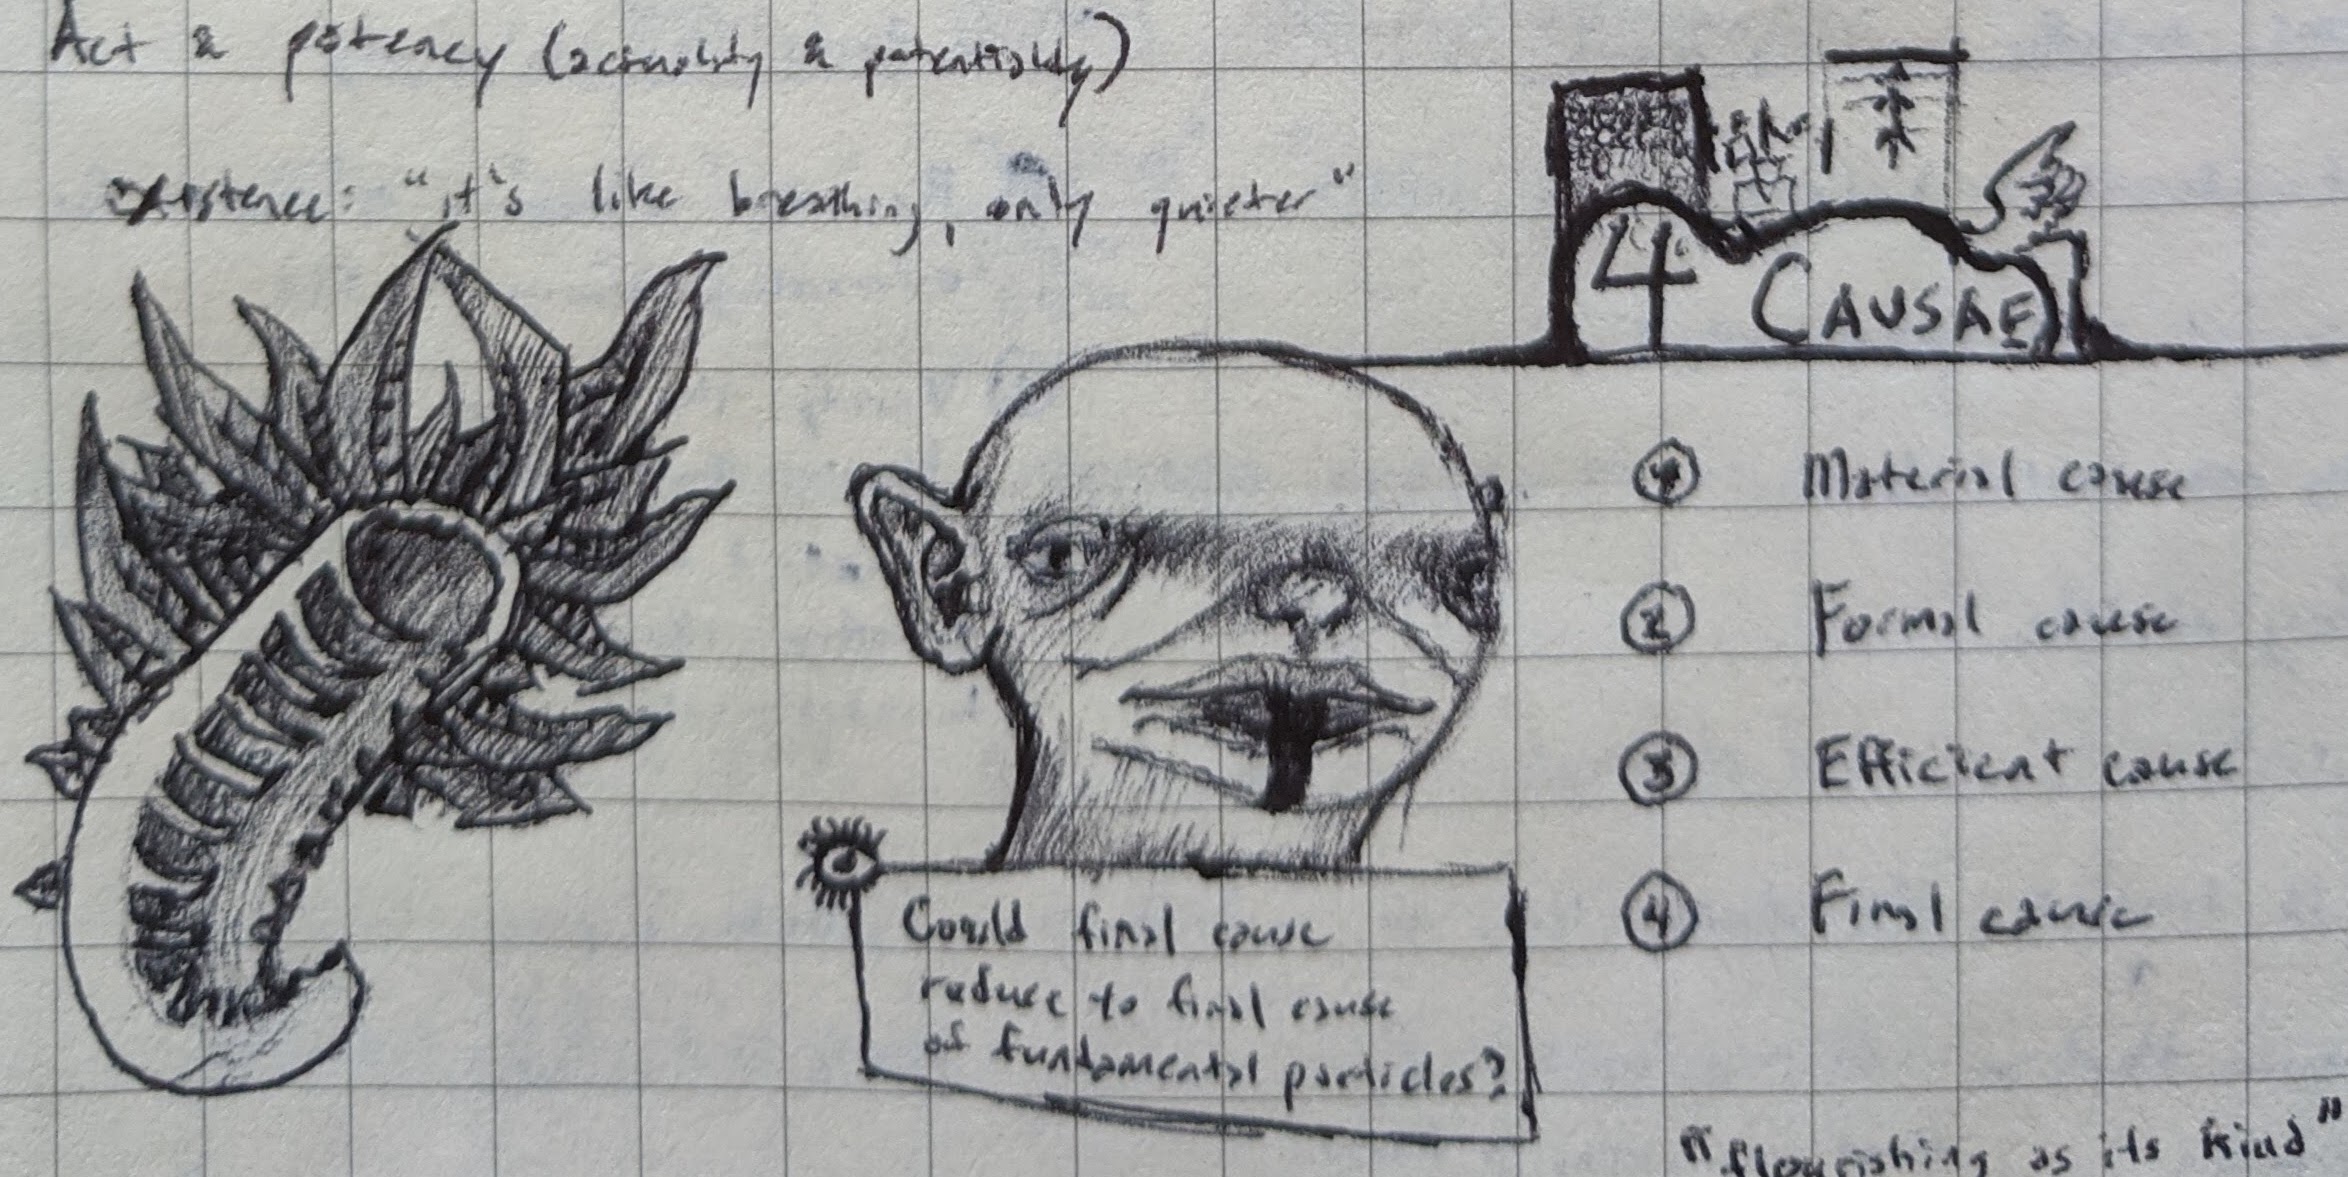 Act & potency (actuality & potentiality)
existence: "it's like breathing, only quieter"
4 CAUSAE
① Material cause
② Formal cause
③ Efficient cause
④ Final cause
Could final cause
reduce to final cause
of fundamental particles?
"flourishing as its kind"